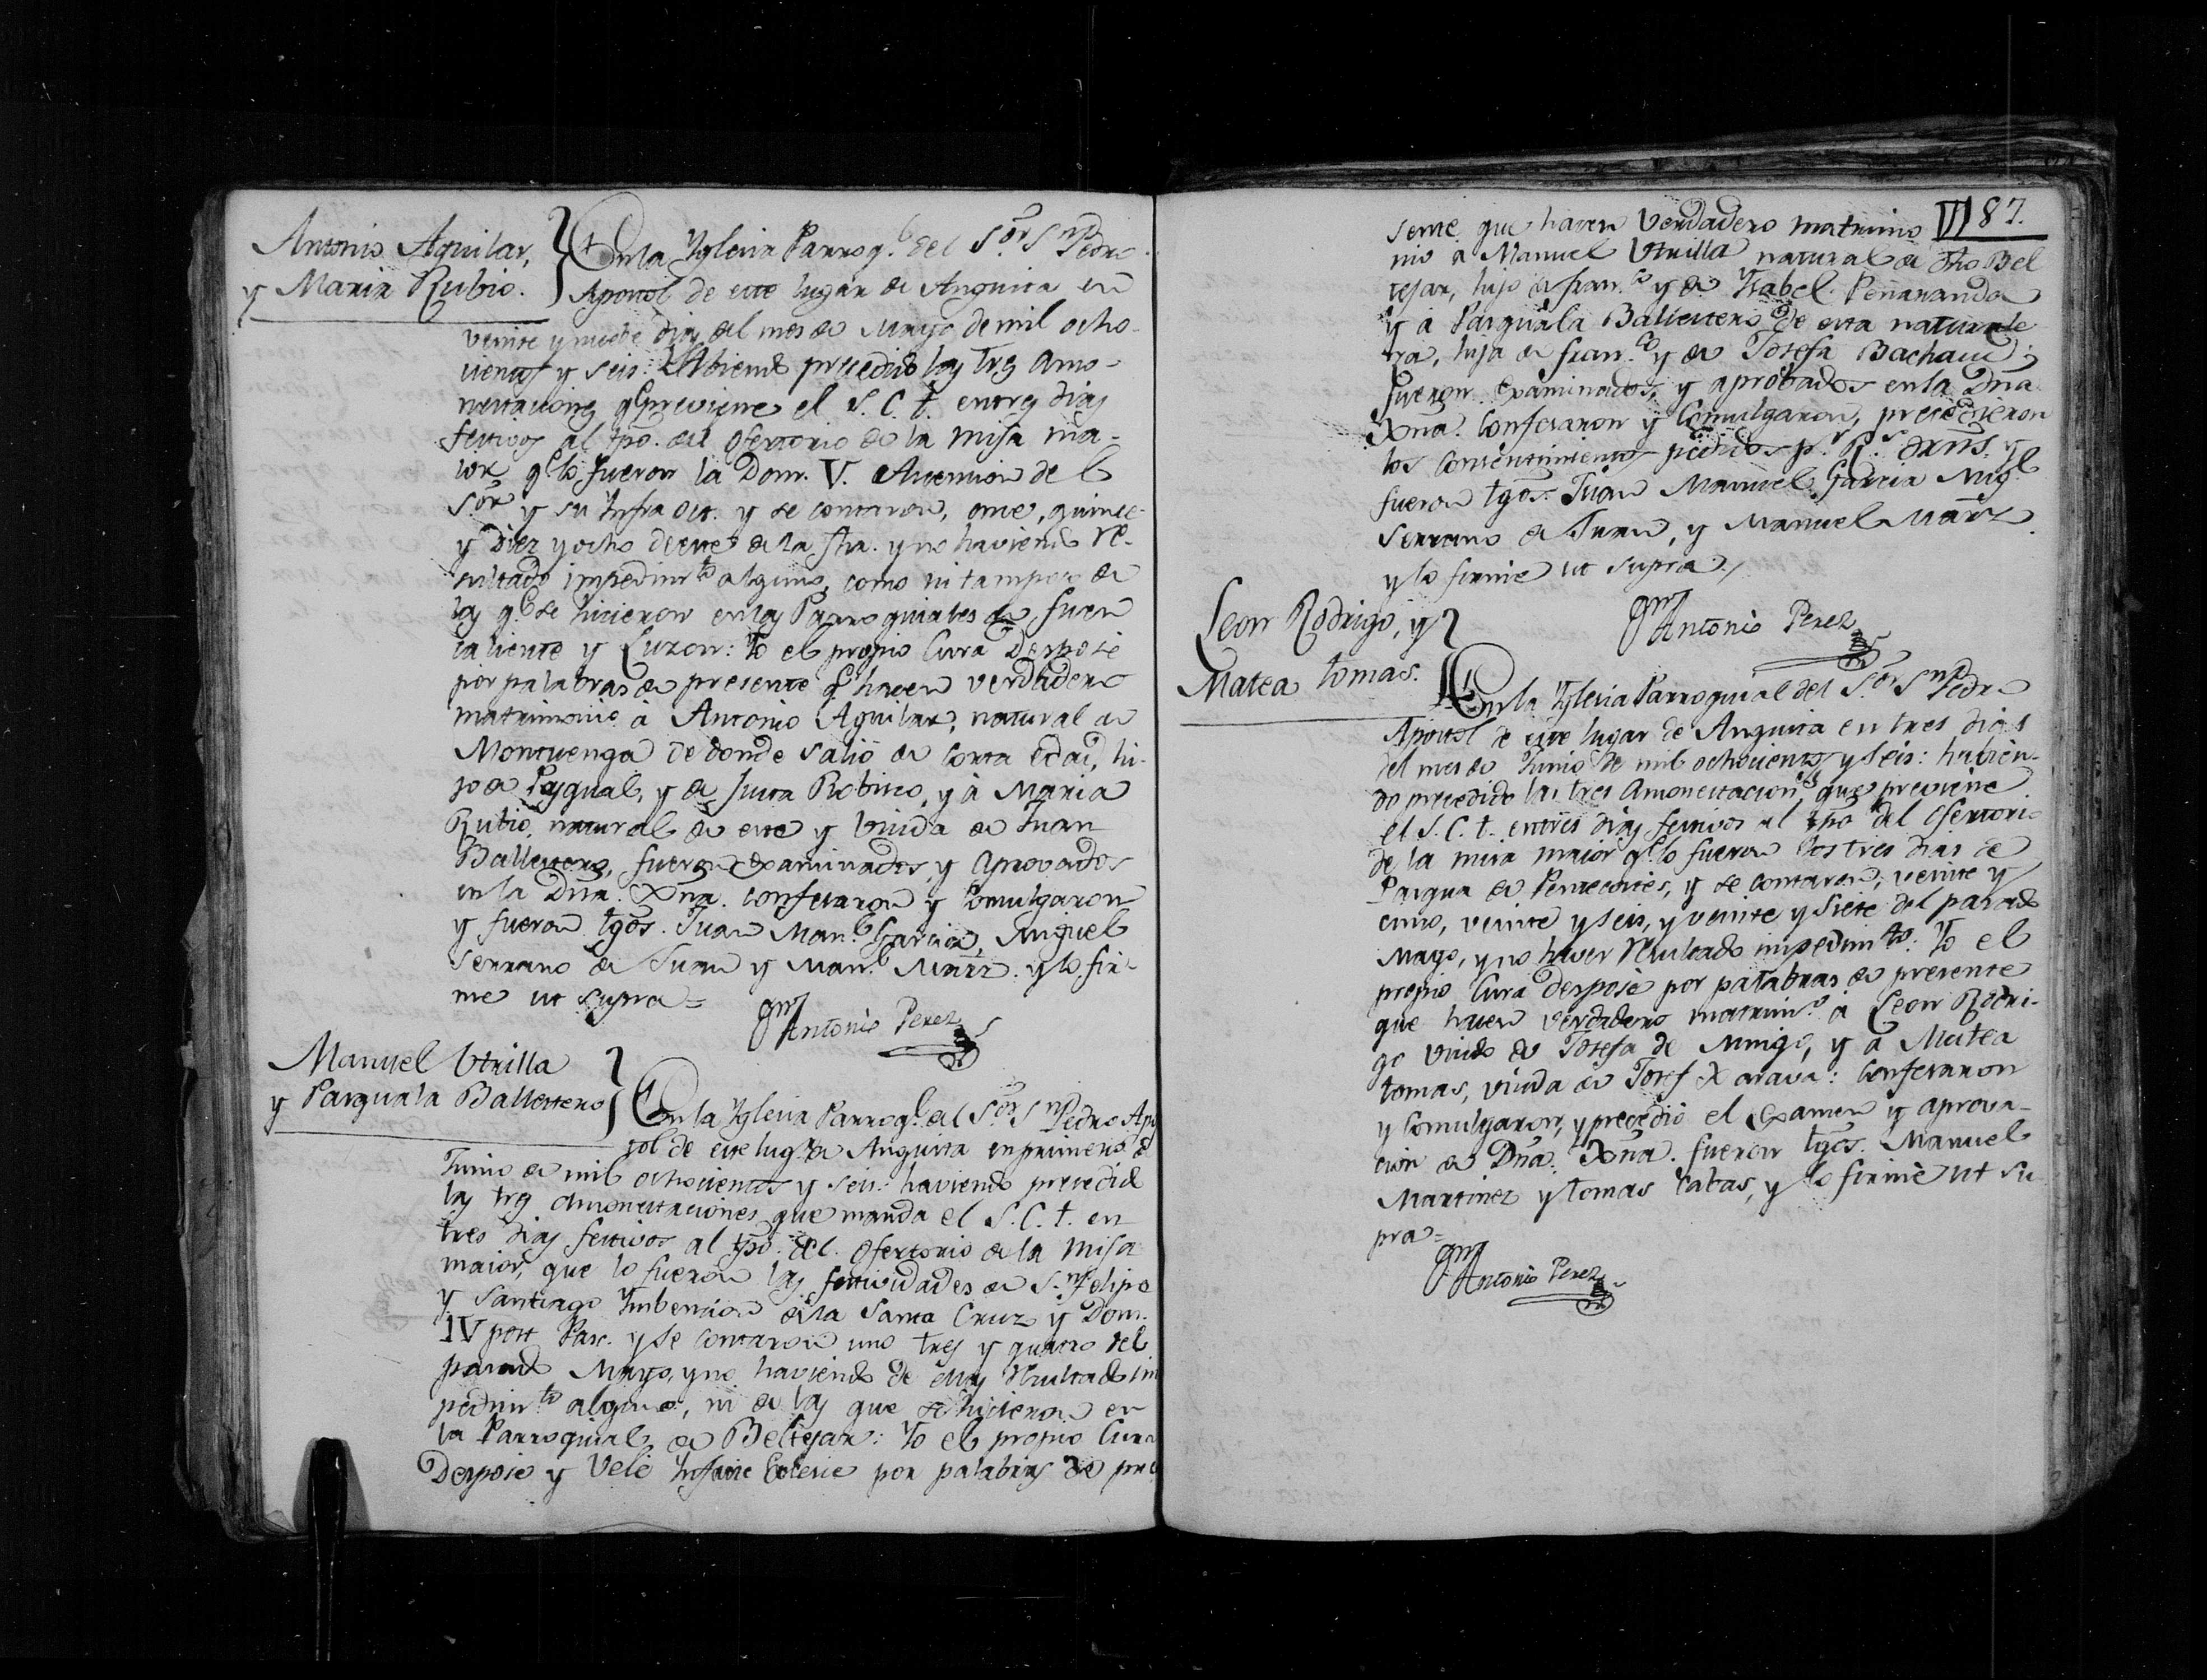 Antonio Aguilar,
y Maria Rubio.
En la Yglesia Parroq.l del S.or S.n Pedro
Apostol de este lugar de Anguita en
veinte y nuebe dias del mes de Mayo de mil ocho-
cientos y seis: Habiendo precedido las tres amo-
nestaciones q.e previene el S. C. t. en tres dias
festivos al tpo. del Ofertorio de la Misa ma-
ior q.e lo fueron la Dom. V. Ascension del
S.or y su Infra oct. y se contaron, once, quince
y Diez y ocho de este de la fha. y no haviendo re-
sultado impedim.to alguno, como ni tampoco de
las q.e se hicieron en las Parroquiales de Fuen
caliente y Luzon: Yo el propio Cura Desposé
por palabras de presente q.e hacen verdadero
matrimonio à Antonio Aguilar, natural de
Montuenga de donde salió de corta edad, hi-
jo de Pasqual, y de Justa Robisco, y à Maria
Rubio, natural de este y viuda de Juan
Ballestero, fueron examinados, y aprovados
en la Dña. Xña. confesaron y Comulgaron
y fueron tgos. Juan Man.l Garcia, Miguel
Serrano de Juan y Man.l Marz. y lo fir-
me ut supra=
Antonio Perez
Manuel Utrilla
y Pasquala Ballestero
En la Yglesia Parroq.l del S.or S.n Pedro Apos
tol de este lug.r de Anguita en primero de
Junio de mil ochocientos y seis: haviendo precedido
las tres amonestaciones que manda el S. C. t. en
tres dias festivos al tpo. del Ofertorio de la Misa
maior, que lo fueron las festividades de S.n Felipe
y Santiago Ynbencion de la Santa Cruz y Dom.
IV post Pasc. y se contaron uno tres y quatro del
pasado Mayo, y no haviendo de ellas resultado im
pedim.to alguno, ni de las que se hicieron en
la Parroquial de Beltejar: Yo el propio Cura
Desposé y Velé Infacie Eclesie por palabras de pre
87.
sente que hacen Verdadero matrimo
nio a Manuel Utrilla natural de dho Bel
tejar, hijo de fran.co y de Ysabel Peñaranda
y à Pasquala Ballestero de esta naturale
za, hija de fran.co y de Josefa Bachaud;
fueron examinados, y aprobados en la Dña
Xña. Confesaron y Comulgaron, precedieron
los consentimientos pedidos p.r
fueron tgos. Juan Manuel Garcia Mig.l
Serrano de Juan, y Manuel Marz.
y lo firmé ut supra
Antonio Perez
Leon Rodrigo, y
Matea tomas.
En la Yglesia Parroquial del S.or S.n Pedro
Apostol de este lugar de Anguita en tres dias
del mes de Junio de mil ochocientos y seis: habien-
do precedido las tres Amonestaciones que previene
el S. C. t. en tres dias festivos al tpo del Ofertorio
de la misa maior q.e lo fueron los tres dias de
Pasqua de Pentecostes, y se contaron, veinte y
cinco, veinte y seis, y veinte y siete del pasado
Mayo, y no haver resultado impedim.to: Yo el
propio Cura desposé por palabras de presente
que hacen verdadero matrim.o à Leon Rodri-
go viudo de Josefa de Mingo, y à Matea
tomas, viuda de Josef Xarava: Confesaron
y Comulgaron, y precedió el examen y aprova-
cion de Dña. Xña. fueron tgos. Manuel
Martinez y tomas Cabas, y lo firmé ut su
pra=
Antonio Perez